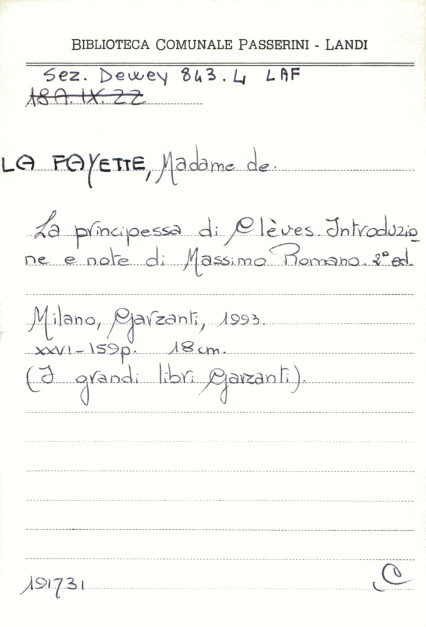 BIBLIOTECA COMUNALE PASSERINI - LANDI
Sez. Dewey 843.4 LAF
18A.IX.22
LA FAYETTE, Madame de.
La principessa di Clèves. Introduzio
ne e note di Massimo Romano. 2° ed.
Milano, Garzanti, 1993.
XXVI-159p. 18 cm.
(I grandi libri Garzanti).
191731
C